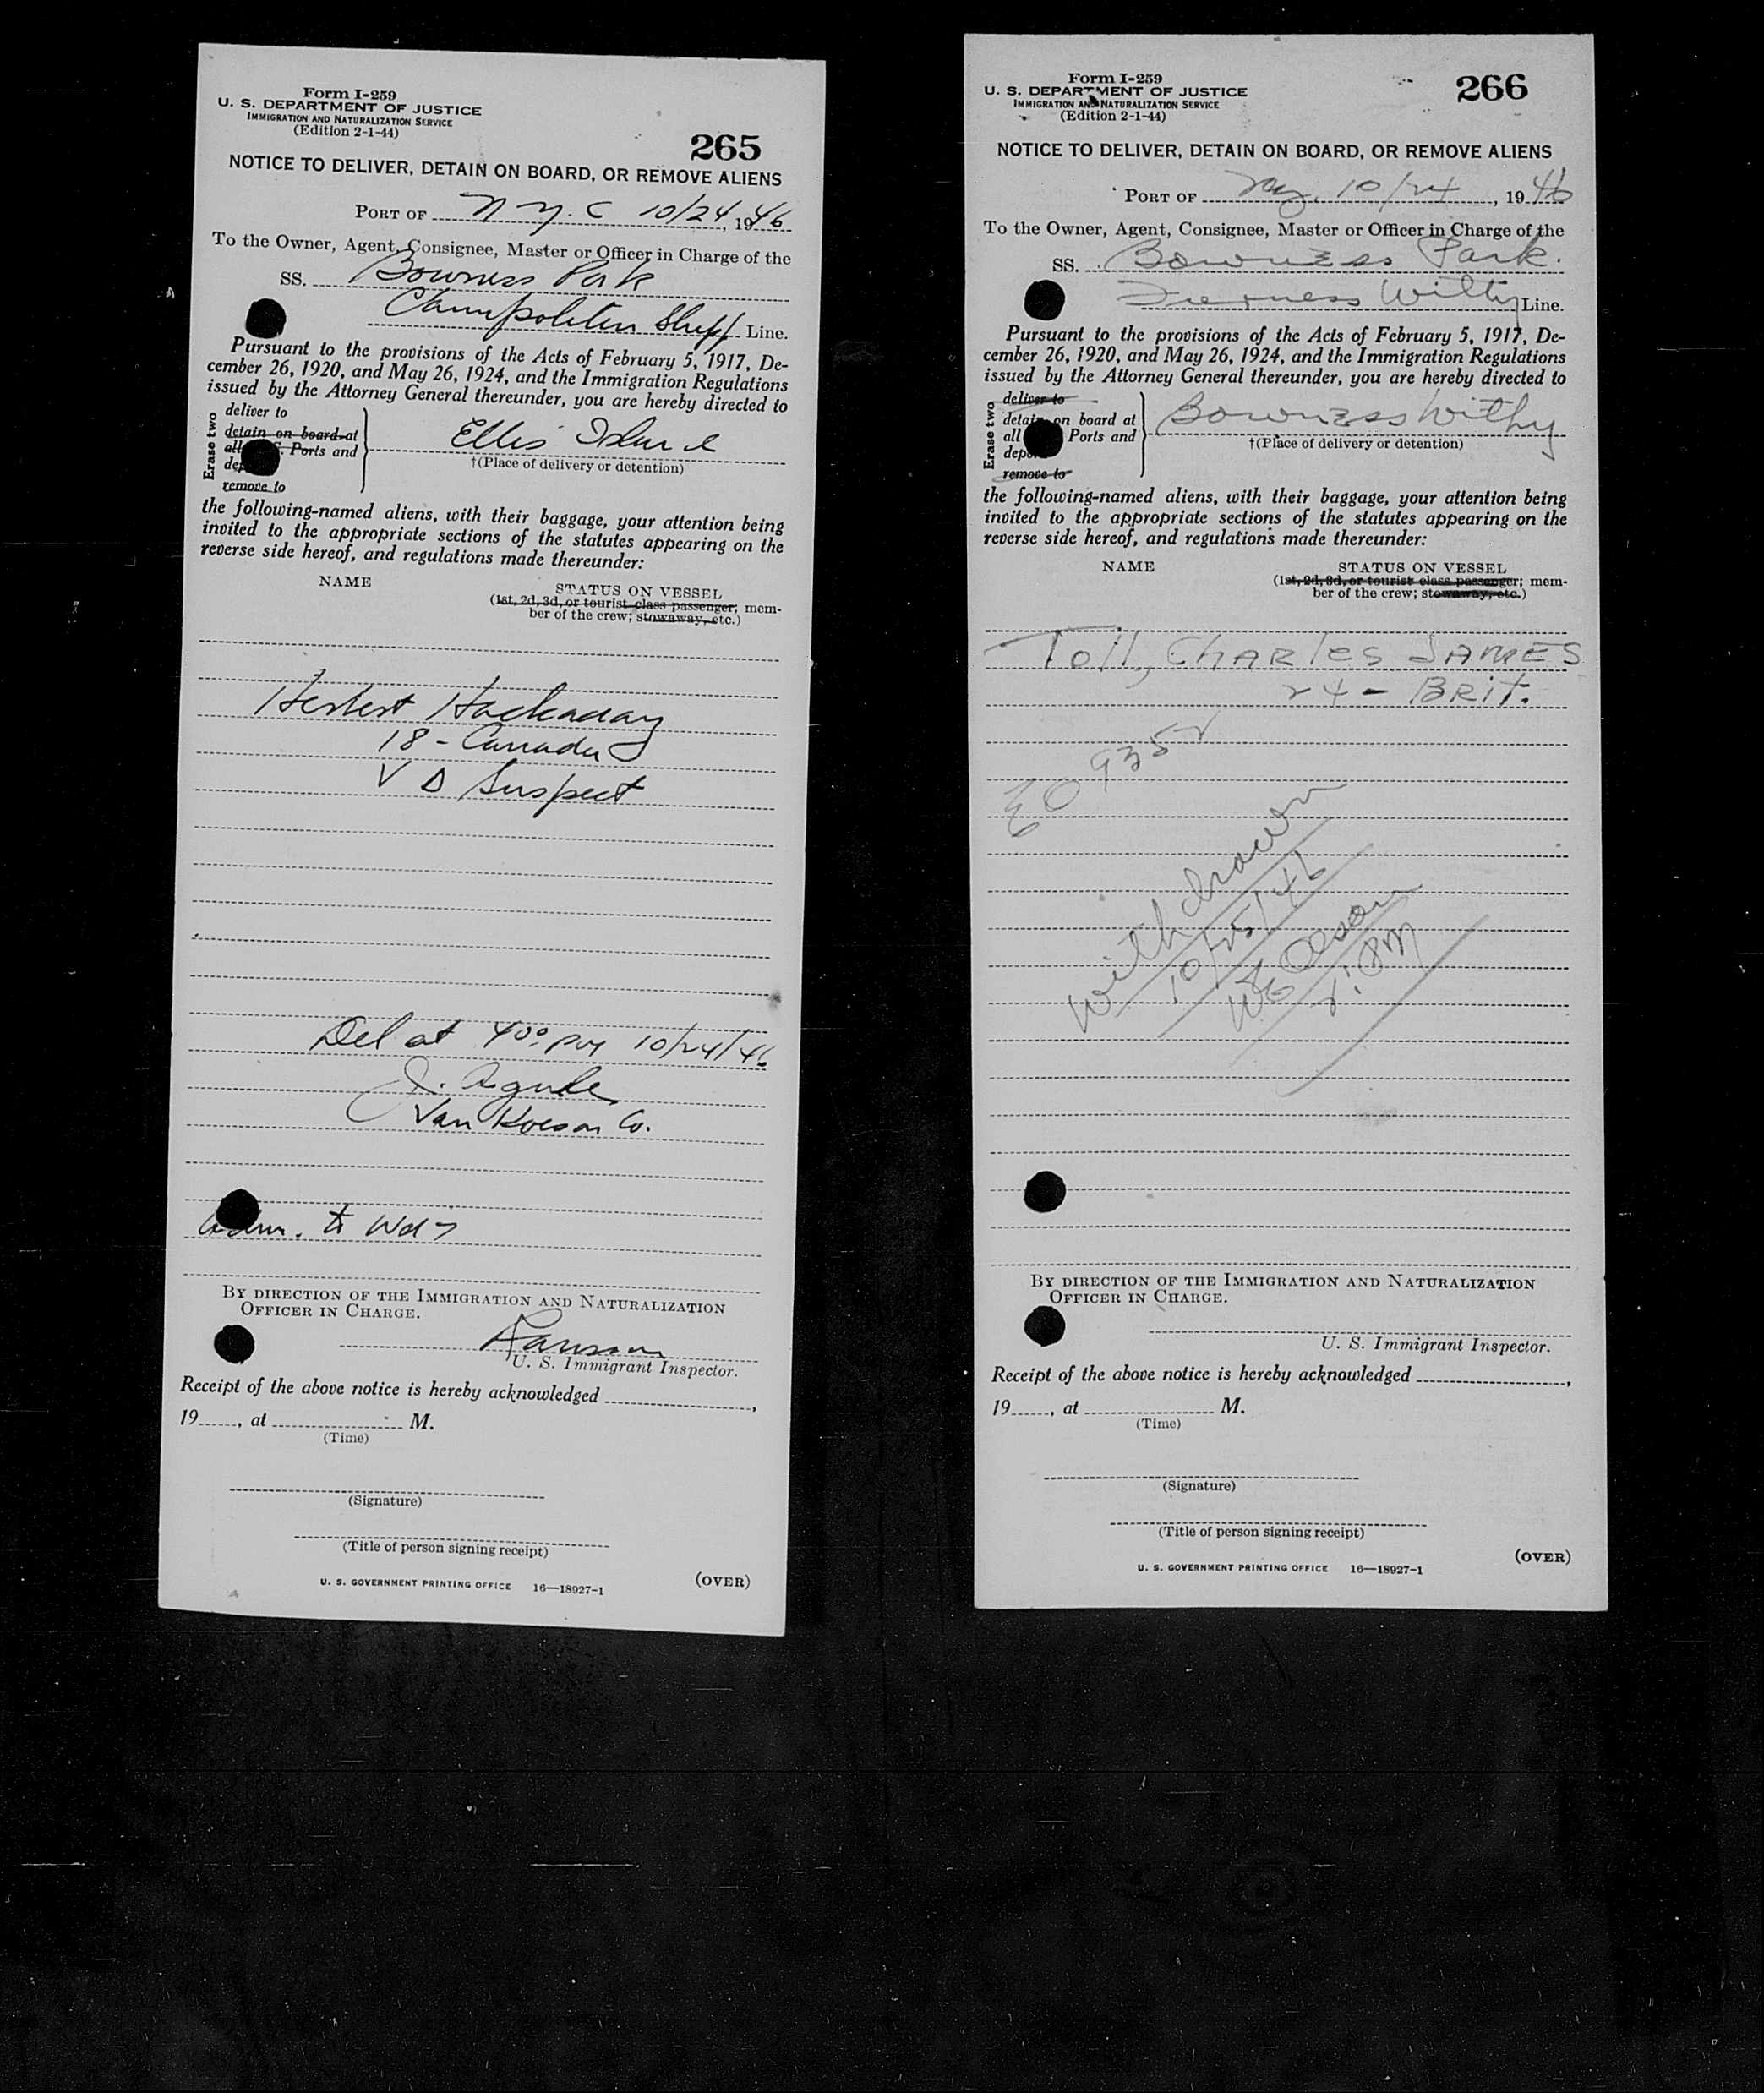 Form I-259
U. S. DEPARTMENT OF JUSTICE
IMMIGRATION AND NATURALIZATION SERVICE
(Edition 2-1-44)
265
NOTICE TO DELIVER, DETAIN ON BOARD, OR REMOVE ALIENS
PORT OF N.Y.C 10/24, 1946
To the Owner, Agent, Consignee, Master or Officer in Charge of the
SS. Bowness Park
Line.
Pursuant to the provisions of the Acts of February 5, 1917, De-
cember 26, 1920, and May 26, 1924, and the Immigration Regulations
issued by the Attorney General thereunder, you are hereby directed to
Erase two
deliver to
detain on board at
all Ports and
remove to
Ellis Island
†(Place of delivery or detention)
the following-named aliens, with their baggage, your attention being
invited to the appropriate sections of the statutes appearing on the
reverse side hereof, and regulations made thereunder:
NAME
STATUS ON VESSEL
(1st, 2d, 3d, or tourist class passenger; mem-
ber of the crew; stowaway, etc.)
Herbert Hockaday
18 - Canada
V D Suspect
Del at 400 PM 10/24/46
Van
Co.
Adm. to Wd 7
BY DIRECTION OF THE IMMIGRATION AND NATURALIZATION
OFFICER IN CHARGE.
Ransom
U. S. Immigrant Inspector.
Receipt of the above notice is hereby acknowledged ,
19 , at M.
(Time)
(Signature)
(Title of person signing receipt)
U. S. GOVERNMENT PRINTING OFFICE 16—18927-1
(OVER)
Form I-259
U. S. DEPARTMENT OF JUSTICE
IMMIGRATION AND NATURALIZATION SERVICE
(Edition 2-1-44)
266
NOTICE TO DELIVER, DETAIN ON BOARD, OR REMOVE ALIENS
PORT OF NY 10/24, 1946
To the Owner, Agent, Consignee, Master or Officer in Charge of the
SS. Bowness Park.
Withy Line.
Pursuant to the provisions of the Acts of February 5, 1917, De-
cember 26, 1920, and May 26, 1924, and the Immigration Regulations
issued by the Attorney General thereunder, you are hereby directed to
Erase two
deliver to
detain on board at
all Ports and
remove to
Bowness Withy
†(Place of delivery or detention)
the following-named aliens, with their baggage, your attention being
invited to the appropriate sections of the statutes appearing on the
reverse side hereof, and regulations made thereunder:
NAME
STATUS ON VESSEL
(1st, 2d, 3d, or tourist class passenger; mem-
ber of the crew; stowaway, etc.)
Toll, CHARles JAMES
24 - BRIT.
EO 9352
Withdrawn
10/25/46
Olson
PM
BY DIRECTION OF THE IMMIGRATION AND NATURALIZATION
OFFICER IN CHARGE.
U. S. Immigrant Inspector.
Receipt of the above notice is hereby acknowledged ,
19 , at M.
(Time)
(Signature)
(Title of person signing receipt)
U. S. GOVERNMENT PRINTING OFFICE 16—18927-1
(OVER)